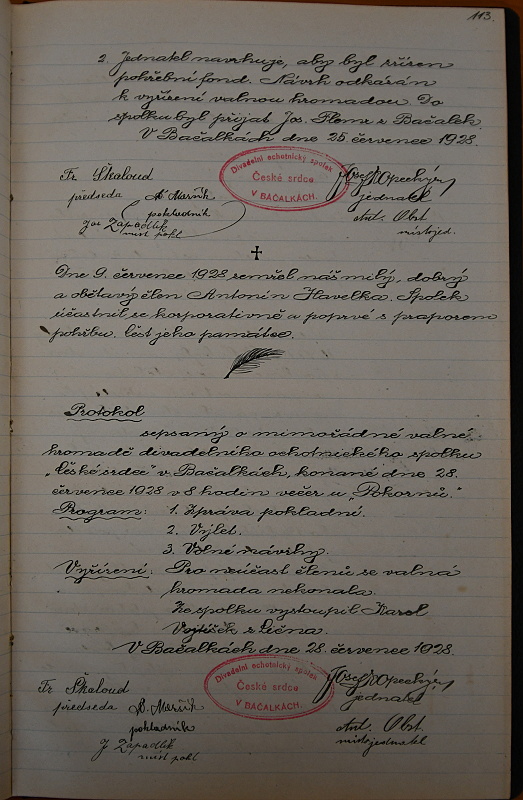 113.
2. Jednatel navrhuje, aby byl zřízen
pohřební fond. Návrh odkázán
k vyřízení valnou hromadou. Do
spolku byl přijat Jos. z Bačalek.
V Bačalkách dne 25 červenec 1928.
Divadelní ochotnický spolek
České srdce
V BAČALKÁCH.
Fr Škaloud
předseda
pokladník
Jos Západlík
míst pokl
Josef Opechý
jednatel
Ant. Obst
místojed.
Dne 9. červenec 1928 zemřel náš milý, dobrý
a obětavý člen Antonín Havelka. Spolek
účastnil se korporativně a poprvé s praporem
pohřbu. Čest jeho památce.
Protokol
sepsaný o mimořádné valné
hromadě divadelního ochotnického spolku
„České srdce" v Bačalkách, konané dne 28.
červenec 1928 v 8 hodin večer u „Pokornů."
Program: 1. Zpráva pokladní.
2. Výlet.
3. Volné návrhy.
Vyřízení: Pro neúčast členů se valná
hromada nekonala.
Ze spolku vystoupil Karel
Vojtíšek z Lična.
V Bačalkách dne 28. červenec 1928
Divadelní ochotnický spolek
České srdce
V BAČALKÁCH.
Fr Škaloud
předseda
pokladník
J Západlík
míst pokl
jednatel
Ant. Obst.
místojednatel